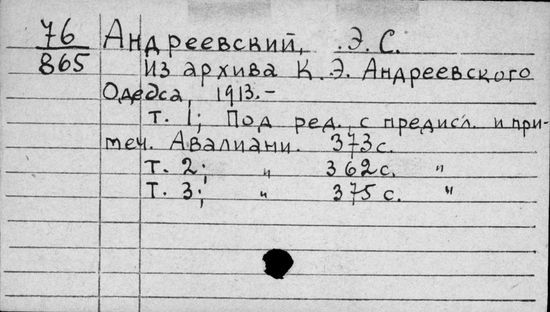 76 Андреевский, Э. С.
865 Из архива К. Э. Андреевского
Одесса, 1913.-
Т. 1; Под ред. с предисл. и при-
меч. Авалиани. 373 с.
Т. 2; " 362 с. "
Т. 3; " 375 с. "